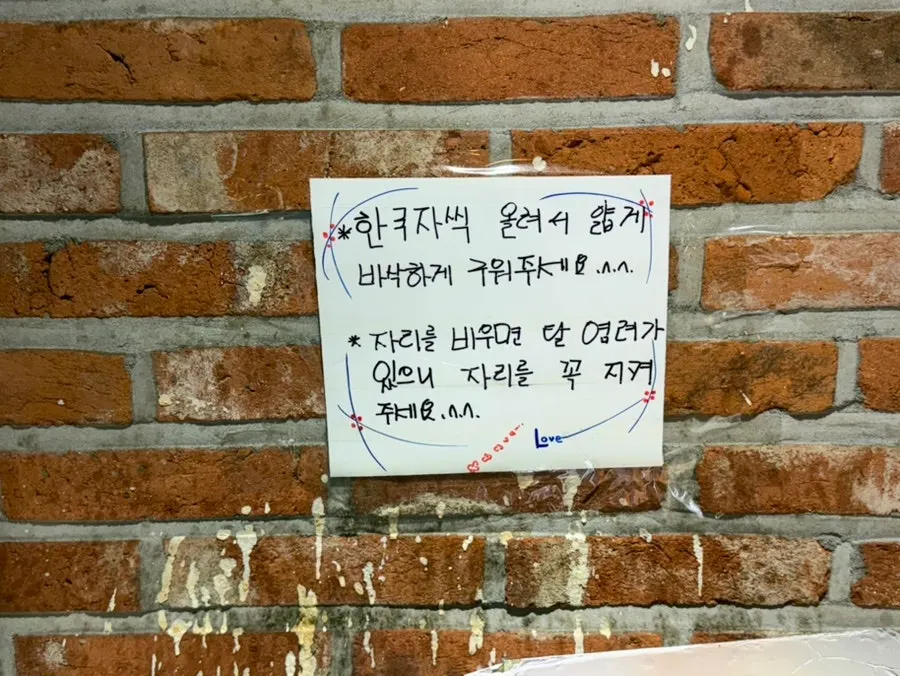 *한국자씩 올려서 얇게
바삭하게 구워주세요.^.^.
* 자리를 비우면 달 염려가
있으니 자리를 꼭 지켜
주세요.^.^.
Love